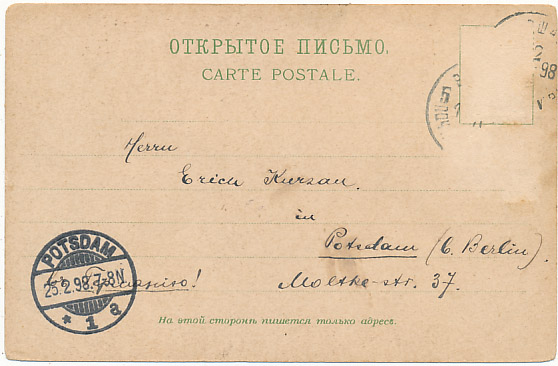 ОТКРЫТОЕ ПИСЬМО.
CARTE POSTALE.
2
98
5
Herrn
Erich Kurzau.
in
Potsdam (b. Berlin).
Moltke-str. 37.
POTSDAM
25.2.98.7-8N
* 1 a
На этой сторонѣ пишется только адресъ.